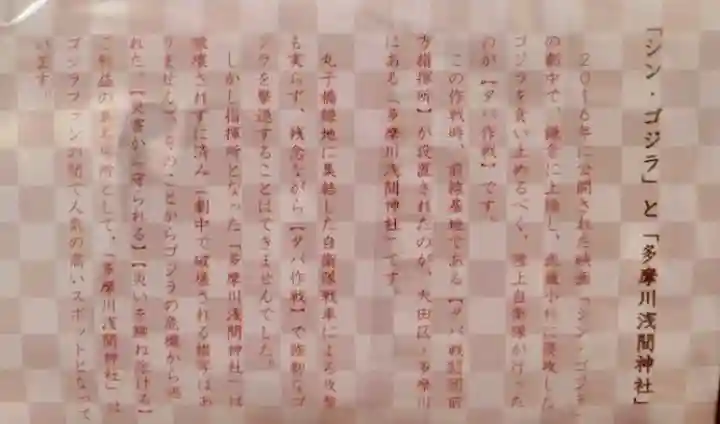 「シン・ゴジラ」と「多摩川浅間神社」
2016年に公開された映画「シン・ゴジラ」
の劇中で、鎌倉に上陸し、武蔵小杉に侵攻した
ゴジラを食い止めるべく、陸上自衛隊が行った
のが【タバ作戦】です。
この作戦時、前線基地である【タバ戦闘団前
方指揮所】が設置されたのが、大田区・多摩川
にある「多摩川浅間神社」です。
丸子橋緑地に集結した自衛隊戦車による攻撃
も実らず、残念ながら【タバ作戦】で強靭なゴ
ジラを撃退することはできませんでした。
しかし指揮所となった「多摩川浅間神社」は
破壊されずに済み【劇中で破壊される描写はあ
りません】そのことからゴジラの危機から逃
れた、【災害から守られる】【災いを跳ね除ける】
ご利益のある場所として、「多摩川浅間神社」は
ゴジラファンの間で人気の高いスポットとなって
います。